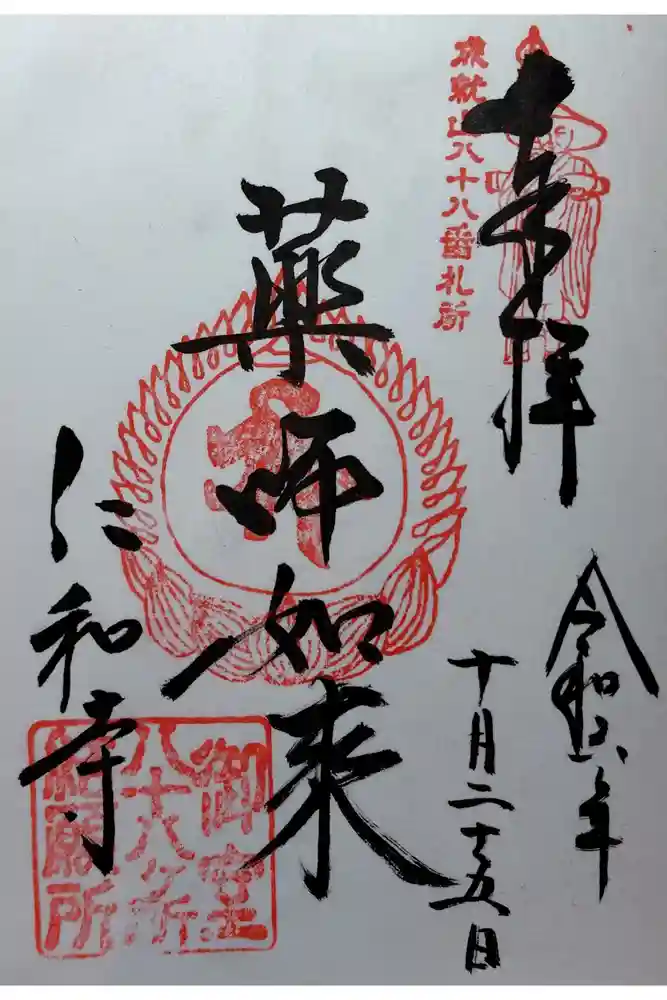 奉拝
成就山八十八番札所
令和六年
十月二十五日
薬師如来
仁和寺
御室
八十八ヶ所
結願所